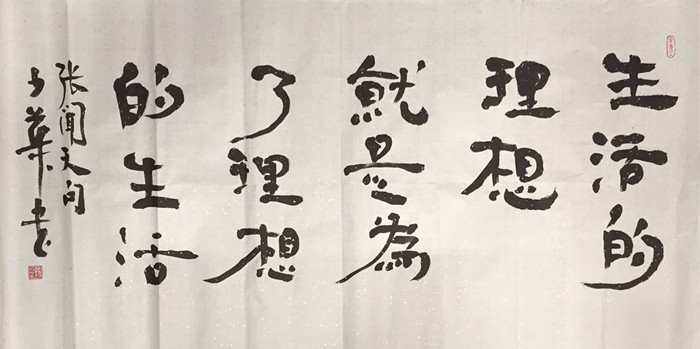 生活的
理想
就是為
了理想
的生活
张闻天句
书